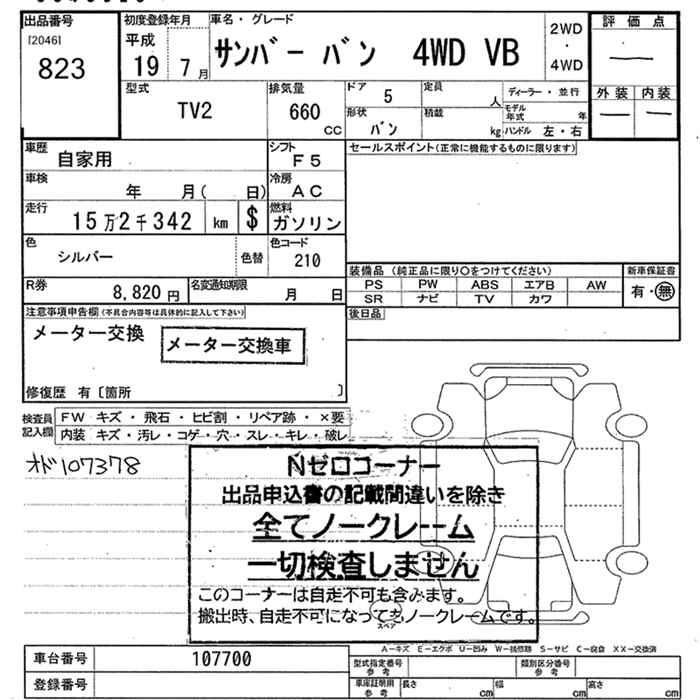 出品番号 初度登録年月 車名・グレード 2WD・4WD 評価点
[2046] 平成 サンバー バン 4WD VB
823 19 7月
外装 内装
型式 排気量 ドア 5 定員 人 ディーラー・並行
TV2 660 CC 形状 バン 積載 kg モデル年式 年
ハンドル 左・右
車歴 自家用 シフト F5 セールスポイント(正常に機能するものに限ります)
車検 年 月( 日) 冷房 AC
走行 15万2千342 km $ 燃料 ガソリン
色 シルバー 色替 色コード 210
装備品 (純正品に限り○をつけてください) 新車保証書
R券 8,820円 名変通知期限 月 日 PS PW ABS エアB AW 有・無
SR ナビ TV カワ
注意事項申告欄(不具合内容等は具体的に記入して下さい) 後日品
メーター交換 メーター交換車
修復歴 有〔箇所 〕
検査員記入欄 FW キズ・飛石・ヒビ割・リペア跡・×要
内装 キズ・汚レ・コゲ・穴・スレ・キレ・破レ
オド107378
Nゼロコーナー
出品申込書の記載間違いを除き
全てノークレーム
一切検査しません
このコーナーは自走不可も含みます。
搬出時、自走不可になってもノークレームです。
スペア
A-キズ E-エクボ U-凹み W-補修跡 S-サビ C-腐食 XX-交換済
車台番号 107700 型式指定番号 参考 類別区分番号 参考
登録番号 車庫証明用 参考 長さ cm 幅 cm 高さ cm